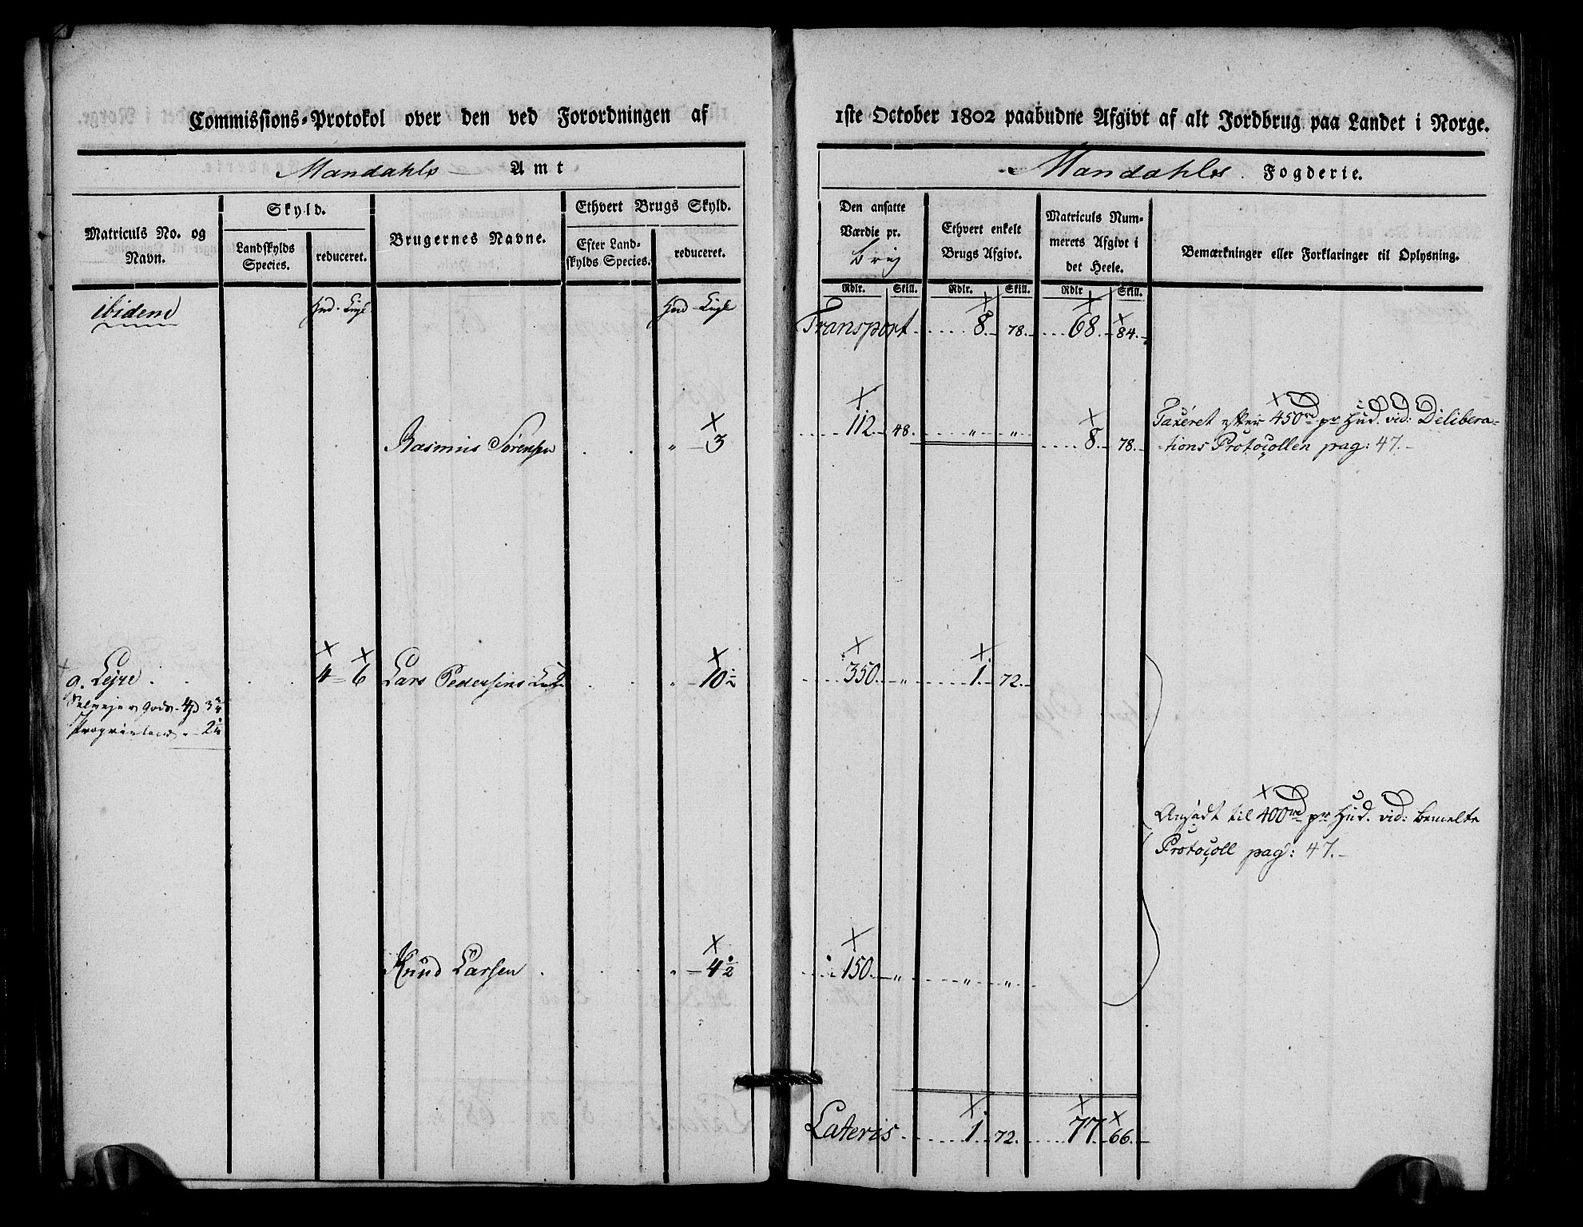 Commissions-Protokol over den ved Forordningen af
1ste October 1802 paabudne Afgivt af alt Jordbrug paa Landet i Norge.
Mandahls Amt
Mandahls Fogderie.
Matriculs No. og Navn.
Skyld.
Landskylds Species.
reduceret.
Brugernes Navne.
Ethvert Brugs Skyld.
Efter Landskylds Species.
reduceret.
Den ansatte Værdie pr. Brug
Ethvert enkelt Brugs Afgivt.
Matriculs Nummerets Afgivt i det Heele.
Bemærkninger eller Forklaringer til Oplysning.
Rdlr. Skill. Rdlr. Skill. Rdlr Skill.
ibidem
Transport 8. 78. 68. 84.
Rasmus Sörensen " 3 112 48. " " 8. 78.
Taxeret efter 450rd pr Hud. vid: Delibera-
tions Protocollen pag: 47.
9. Lejre 4 6 Lars Pedersens " 10½ 350. " 1. 72.
Selvejer Gods
Ansadt til 400rd pr Hud. vid: bemelte
Protocoll pag: 47.
Knud Larsen " 4½ 150. " " "
Lateris 1 72. 77 66.